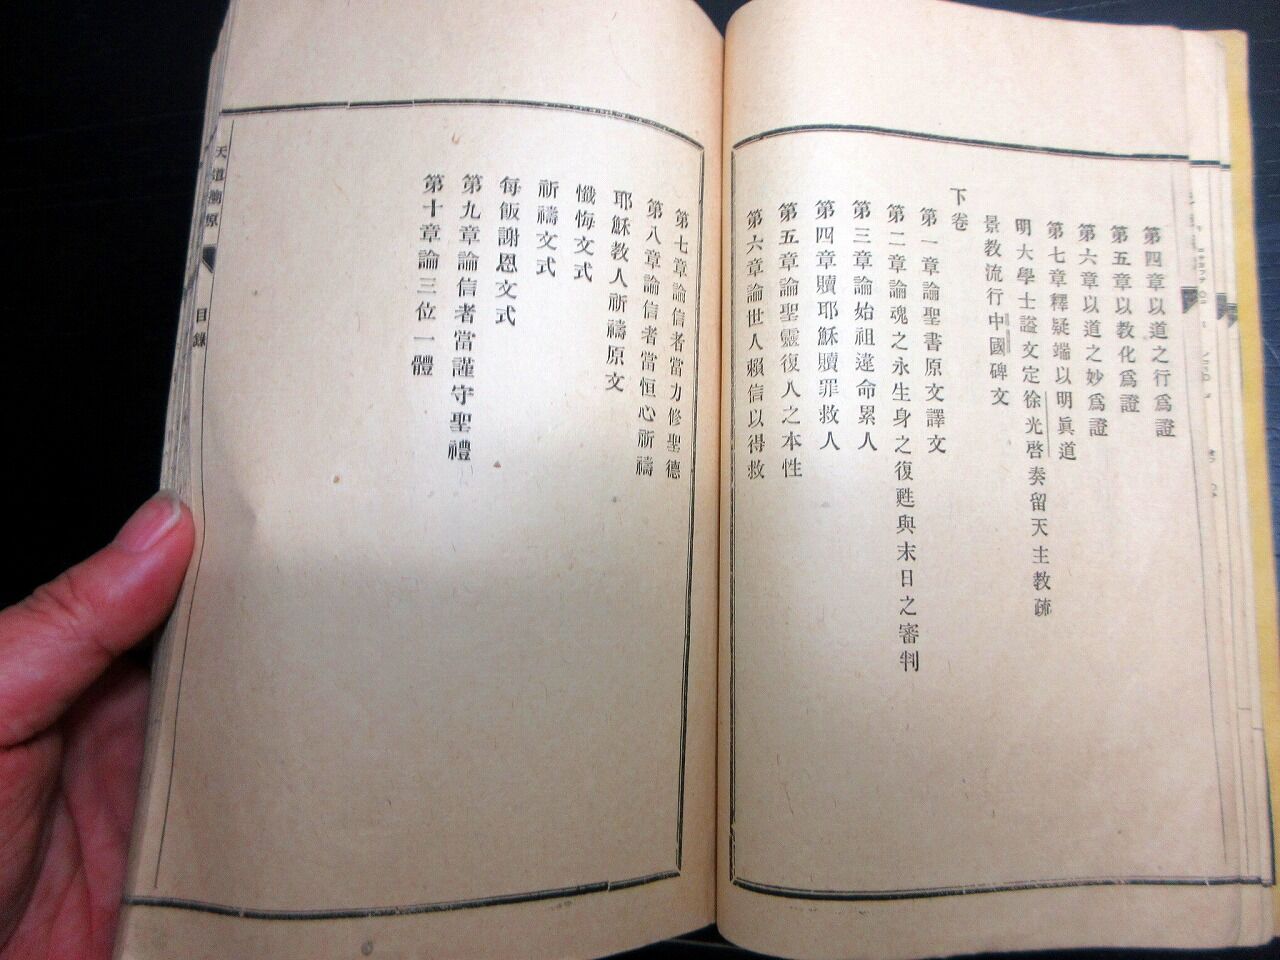 第四章以道之行爲證
第五章以教化爲證
第六章以道之妙爲證
第七章釋疑端以明眞道
明大學士謚文定徐光啓奏留天主教疏
景教流行中國碑文
下卷
第一章論聖書原文譯文
第二章論魂之永生身之復甦與末日之審判
第三章論始祖違命累人
第四章贖耶穌贖罪救人
第五章論聖靈復人之本性
第六章論世人賴信以得救
第七章論信者當力修聖德
第八章論信者當恒心祈禱
耶穌教人祈禱原文
懺悔文式
祈禱文式
每飯謝恩文式
第九章論信者當謹守聖禮
第十章論三位一體
天道溯原
目錄